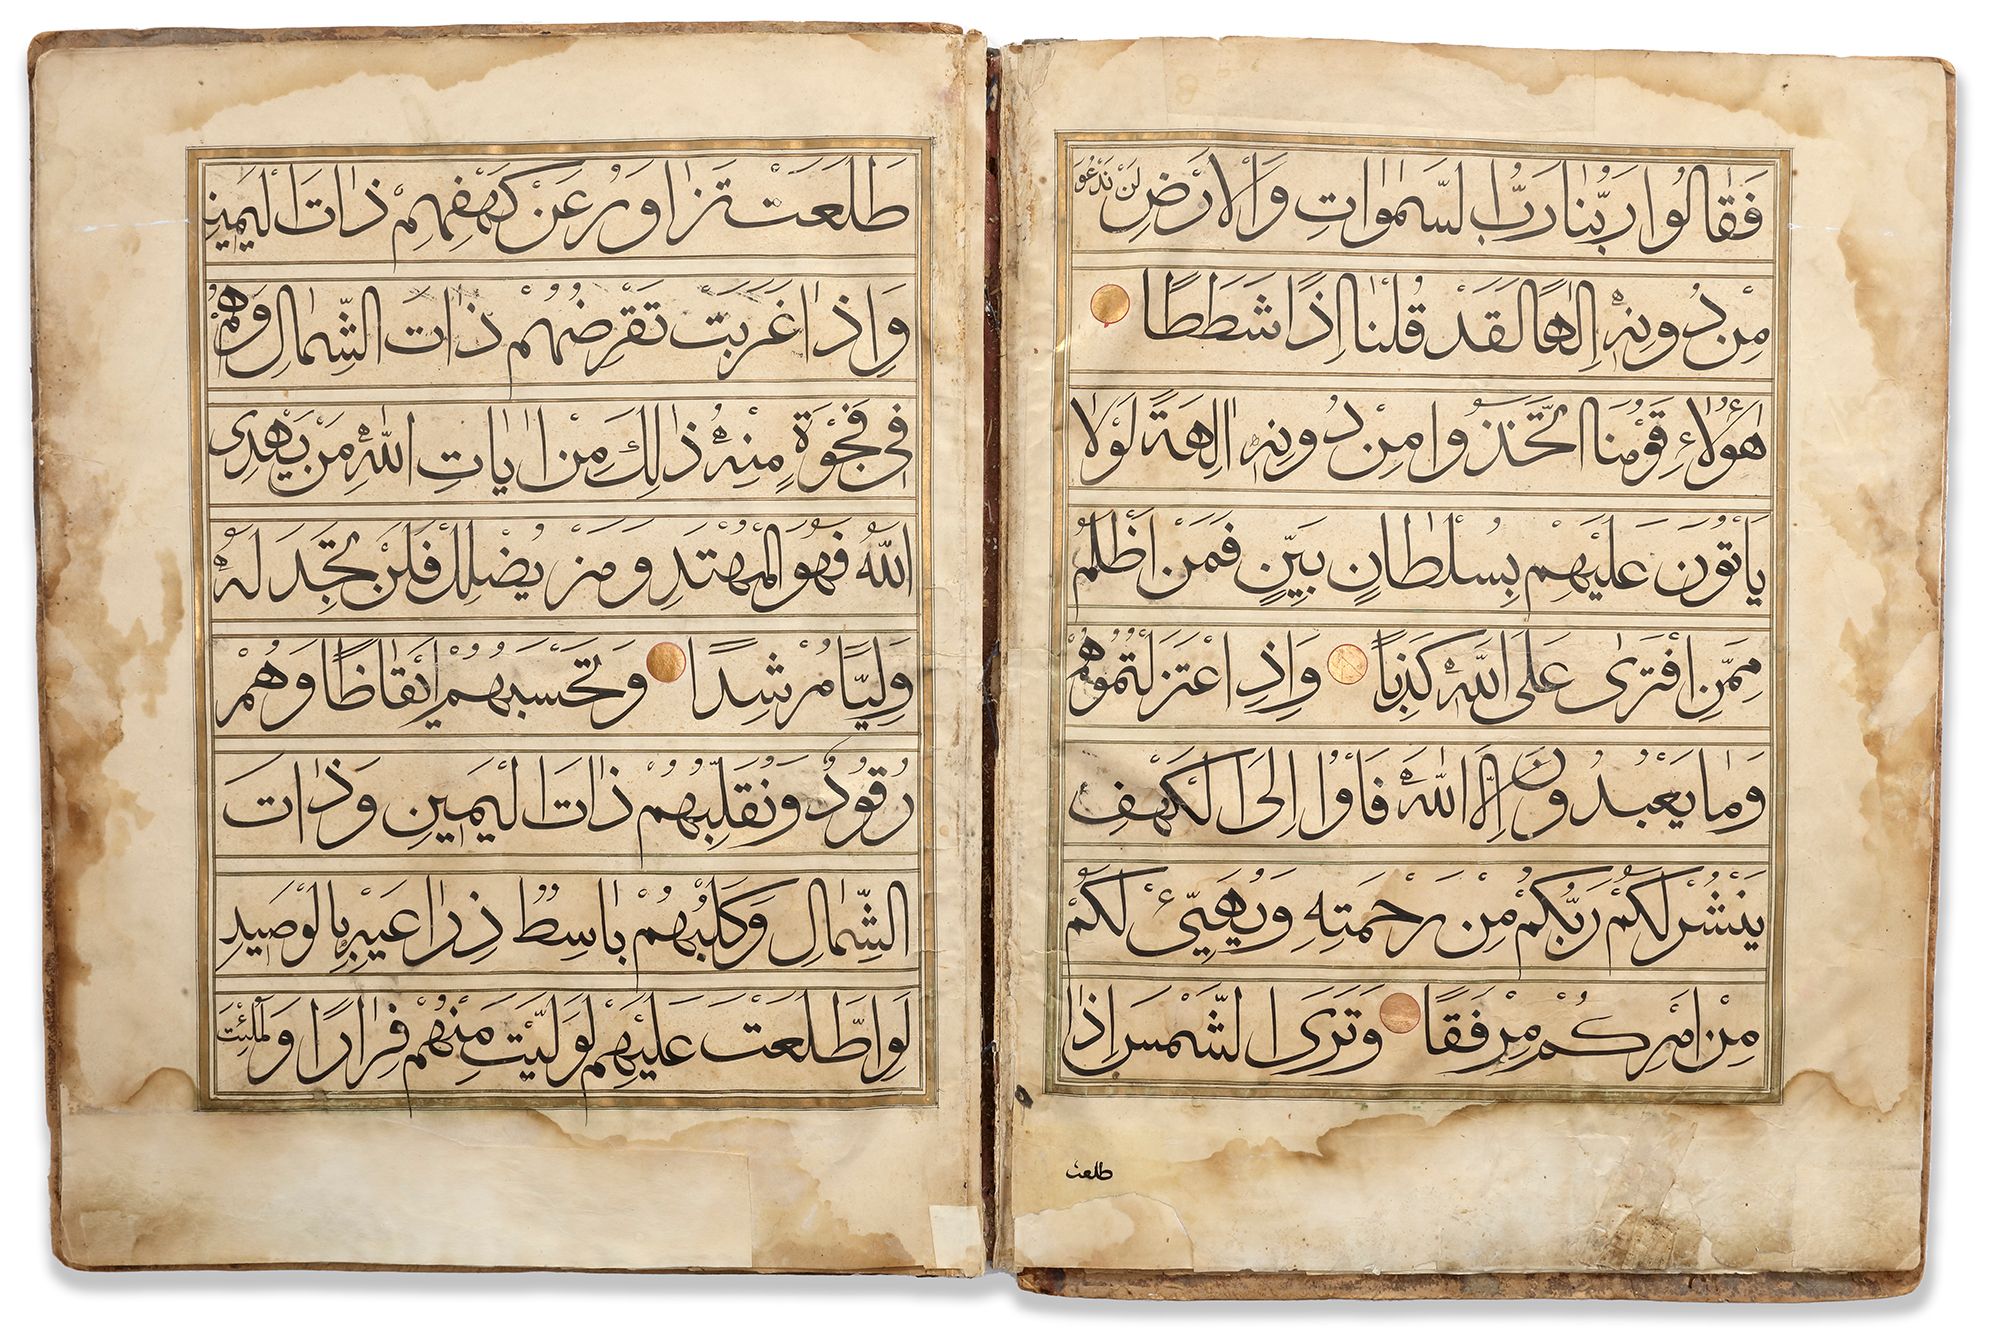 فَقَالُوا رَبُّنَا رَبُّ السَّمٰوَاتِ وَالْاَرْضِ لَنْ نَدْعُوَ
مِنْ دُونِهٖٓ اِلٰهًا لَقَدْ قُلْنَا اِذًا شَطَطًا
هٰٓؤُلَاءِ قَوْمُنَا اتَّخَذُوا مِنْ دُونِهٖٓ اٰلِهَةً لَوْلَا
يَاْتُونَ عَلَيْهِمْ بِسُلْطَانٍ بَيِّنٍ فَمَنْ اَظْلَمُ
مِمَّنِ افْتَرٰى عَلَى اللّٰهِ كَذِبًا وَاِذِ اعْتَزَلْتُمُوهُمْ
وَمَا يَعْبُدُونَ اِلَّا اللّٰهَ فَاْوُا اِلَى الْكَهْفِ
يَنْشُرْ لَكُمْ رَبُّكُمْ مِنْ رَحْمَتِهٖ وَيُهَيِّئْ لَكُمْ
مِنْ اَمْرِكُمْ مِرْفَقًا وَتَرَى الشَّمْسَ اِذَا
طلعت
طَلَعَتْ تَزَاوَرُ عَنْ كَهْفِهِمْ ذَاتَ الْيَمِينِ
وَاِذَا غَرَبَتْ تَقْرِضُهُمْ ذَاتَ الشِّمَالِ وَهُمْ
فِى فَجْوَةٍ مِنْهُ ذٰلِكَ مِنْ اٰيَاتِ اللّٰهِ مَنْ يَهْدِى
اللّٰهُ فَهُوَ الْمُهْتَدِ وَمَنْ يُضْلِلْ فَلَنْ تَجِدَ لَهُ
وَلِيًّا مُرْشِدًا وَتَحْسَبُهُمْ اَيْقَاظًا وَهُمْ
رُقُودٌ وَنُقَلِّبُهُمْ ذَاتَ الْيَمِينِ وَذَاتَ
الشِّمَالِ وَكَلْبُهُمْ بَاسِطٌ ذِرَاعَيْهِ بِالْوَصِيدِ
لَوِ اطَّلَعْتَ عَلَيْهِمْ لَوَلَّيْتَ مِنْهُمْ فِرَارًا وَلَمُلِئْتَ